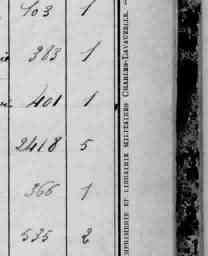 103 1
383 1
401 1
2418 5
366 1
535 2
IMPRIMERIE ET LIBRAIRIE MILITAIRES CHARLES-LAVAUZELLE. —